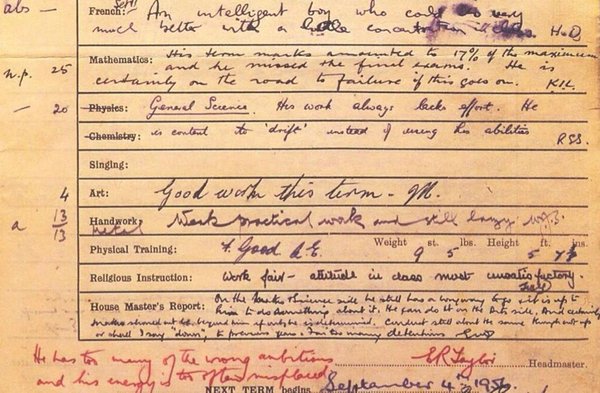 abs — French: An intelligent boy who could do very
much better with a little concentration in class HoD
Mathematics: His term marks amounted to 17% of the maximum
n.p. 25 and he missed the final exams. He is
certainly on the road to failure if this goes on.
— 20 Physics: General Science. His work always lacks effort. He
Chemistry: is content to 'drift' instead of using his abilities RSS.
Singing:
4 Art: Good work this term -
a 13/13 Handwork: Metal Weak practical work and still lazy
Physical Training: F. Good Weight 9 st. 5 lbs. Height 5 ft. 7½ ins.
Religious Instruction: Work fair — attitude in class most unsatisfactory.
House Master's Report: On the science side he still has a long way to go & it is up to
him to do something about it. He can do it on the Arts side, and certainly
should not be beyond him if only he is determined. Conduct still about the same
or shall I say "down", to previous years. Far too many detentions
He has too many of the wrong ambitions E R Taylor Headmaster.
and his energy is too often misplaced
NEXT TERM begins September 4th 1956